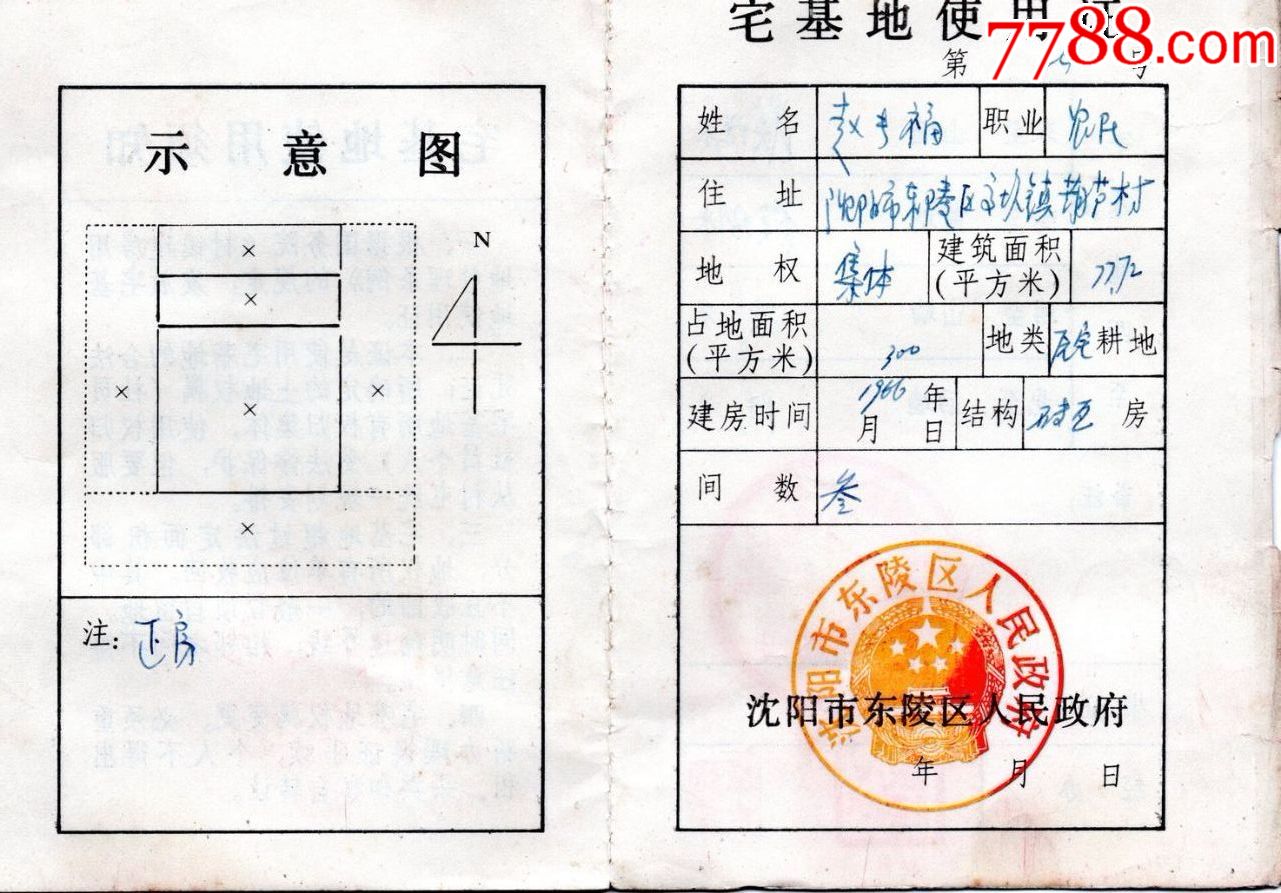 示意图
×
N
×
×
×
×
×
注：正房
宅基地使用证
7788.com
第 号
姓名 赵 福 职业 农民
住址 沈阳市东陵区 镇葫芦村
地权 集体 建筑面积(平方米) 77.72
占地面积(平方米) 300 地类 宅耕地
建房时间 1966年 月 日 结构 砖瓦房
间数 叁
沈阳市东陵区人民政府
沈阳市东陵区人民政府
年 月 日